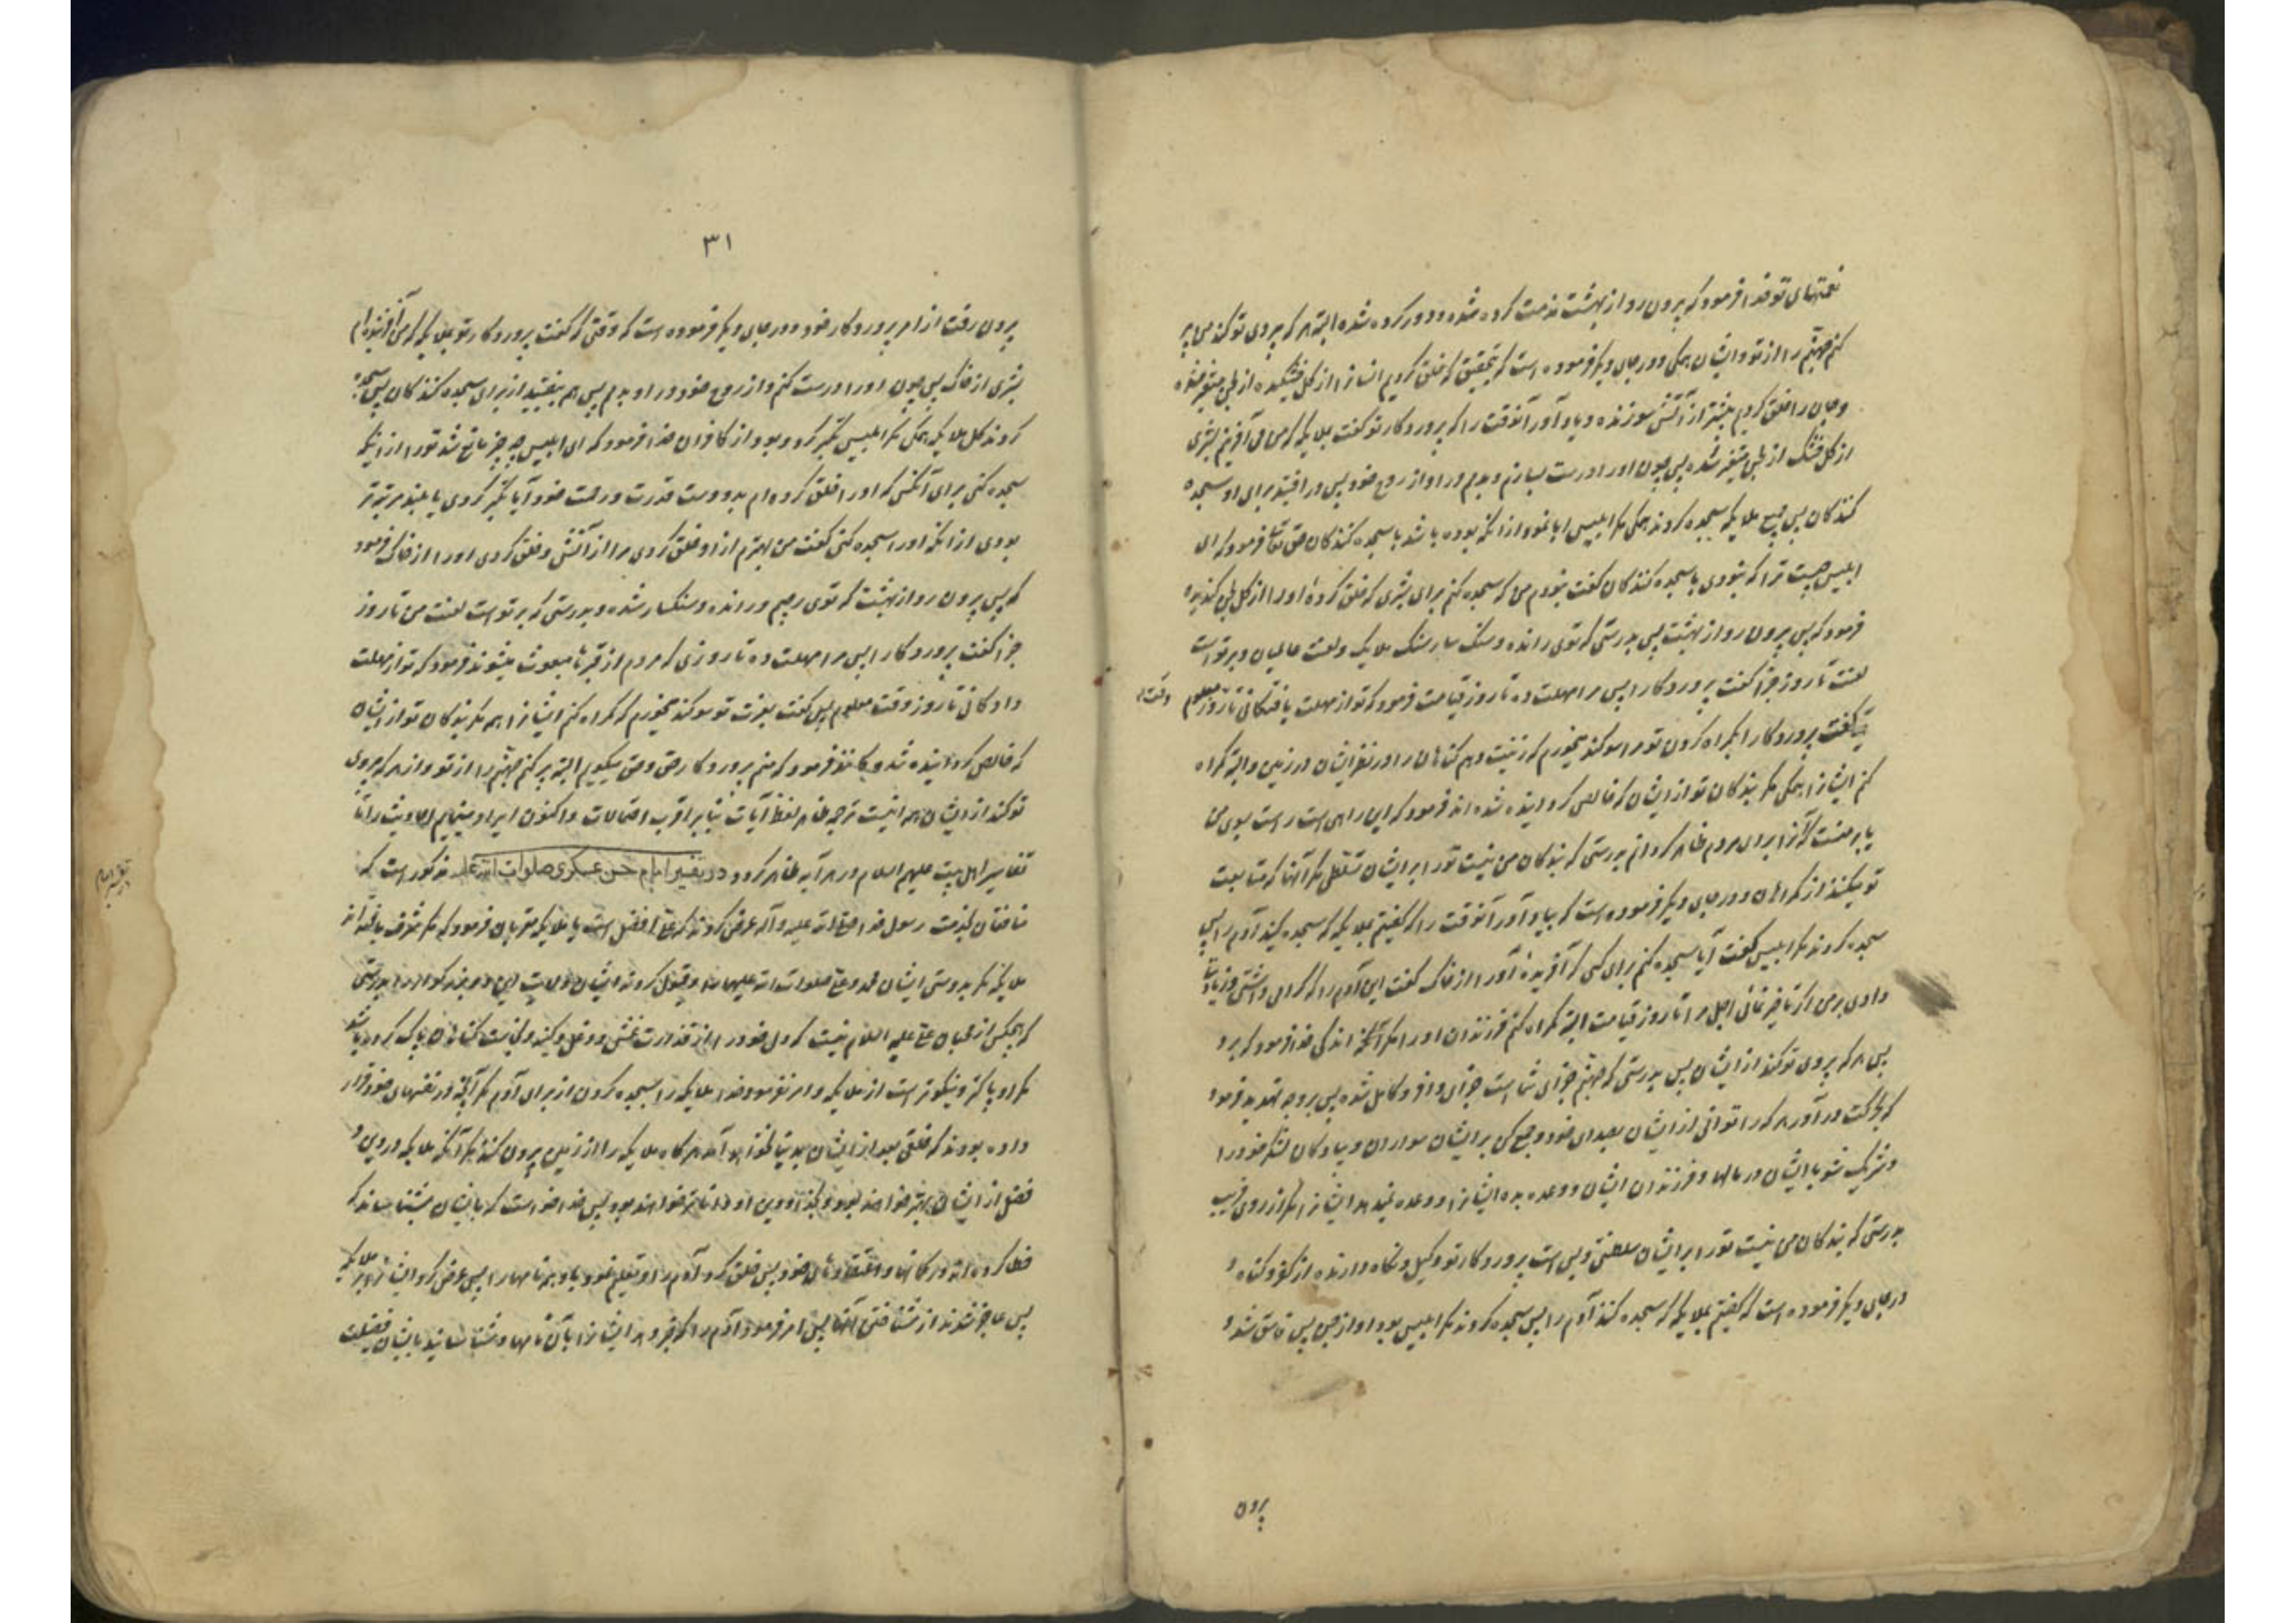 نعمتهای تو خدا فرمود که بیرون رو از بهشت مذمت کرده شده و دور کرده شده البته هر که پیروی تو کند من پر
کنم جهنم را از تو و ایشان همگی و در جای دیگر فرموده است که بتحقیق که خلق کردیم انسانرا از گل خشکیده از لجن متغیر شده
و جان را خلق کردیم پیشتر از آتش سوزنده و یاد آور آنوقت را که پروردگار تو گفت بملایکه که من می آفرینم بشری
از گل خشک از لجن متغیر شده پس چون او را درست بسازم و بدمم در او از روح خود پس در افتید برای او سجده
کنندکان پس جمیع ملایکه سجده کردند همگی مگر ابلیس ابا نمود از آنکه بوده باشد با سجده کنندکان حق تعالی فرمود که ای
ابلیس چیست ترا که نبودی با سجده کنندکان گفت نبودم من که سجده کنم برای بشری که خلق کردهٔ او را از گل لجن گندیده
فرمود که پس بیرون رو از بهشت پس بدرستی که توی رانده و سنک سار بسنک ملایک و لعنت عالمیان و بر تو است
لعنت تا روز جزا گفت پروردگارا پس مرا مهلت ده تا روز قیامت فرمود که تو از مهلت یافتگانی تا روز معلوم
گفت پروردگارا بگمراه کردن تو مرا سوگند میخورم که زینت دهم گناهان را در نظر ایشان در زمین و البته گمراه
کنم ایشانرا همگی مگر بندگان تو از ایشان که خالص گردانیده شده اند فرمود که این راهی است راست بسوی من
یا بر منست که آنرا برای مردم ظاهر گردانم بدرستی که بندکان من نیست تو را بر ایشان تسلطی مگر آنها که متابعت
تو میکنند از گمراهان و در جای دیگر فرموده است که بیاد آور آنوقت را که گفتیم بملایکه که سجده کنید آدم را پس
سجده کردند مگر ابلیس گفت آیا سجده کنم برای کسی که آفریدهٔ او را از خاک گفت این آدم را که گرامی داشتی و زیادتی
دادی بر من اگر تأخیر نمائی اجل مرا تا روز قیامت البته گمراه کنم فرزندان او را مگر اندکی خدا فرمود که برو
پس هر که پیروی تو کند از ایشان پس بدرستی که جهنم جزای شما است جزای وافر و کامل شده پس بر وجه تهدید فرمود
که بحرکت در آور هر که را توانی از ایشان بصدای خود و جمع کن بر ایشان سواران و پیادکان لشکر خود را
و شریک شو با ایشان در مالها و فرزندان ایشان و وعده بده ایشانرا و وعده نمیدهد ایشانرا مگر از روی فریب
بدرستی که بندکان من نیست تو را بر ایشان سلطنتی و بس است پروردگار تو وکیل و نگاه دارنده از کفر و گناه و
در جای دیگر فرموده است که گفتیم بملایکه که سجده کنند آدم را پس سجده کردند مگر ابلیس بود او از جن پس فاسق شد و
بیرون
۳۱
بیرون رفت از امر پروردگار خود و در جای دیگر فرموده است که وقتی که گفت پروردگار تو بملایکه که من آفریننده ام
بشری از خاک پس چون او را درست کنم و از روح خود در او بدمم پس همه بیفتید از برای سجده کنندکان پس سجده
کردند کل ملایکه همگی مگر ابلیس تکبر کرد و بود از کافران خدا فرمود که ای ابلیس چه چیز مانع شد تو را از اینکه
سجده کنی برای آنکس که او را خلق کرده ام بدو دست قدرت و رحمت خود آیا تکبر کردی یا بلند مرتبه تر
بودی از آنکه او را سجده کنی گفت من بهترم از او خلق کردی مرا از آتش و خلق کردی او را از خاک فرمود
که پس بیرون رو از بهشت که توی رجیم و رانده و سنکسار شده و بدرستی که بر تو است لعنت من تا روز
جزا گفت پروردگارا پس مرا مهلت ده تا روزی که مردم از قبرها مبعوث میشوند فرمود که تو از مهلت
دادکانی تا روز وقت معلوم پس گفت بعزت تو سوگند میخورم که گمراه کنم ایشانرا همه مگر بندکان تو از ایشان
که خالص گردانیده شدگانند فرمود که منم پروردگار حق و حق میگویم البته پر کنم جهنم را از تو و از هر که پیروی
تو کند از ایشان همه اینست ترجمه ظاهر لفظ آیات بنا بر اقرب احتمالات و اکنون ایراد مینمایم احادیث را تا
تفاسیر اهل بیت علیهم السلام در هر آیه ظاهر گردد در تفسیر امام حسن عسکری صلوات الله علیه مذکور است که
منافقان بخدمت رسول خدا صلی الله علیه و آله عرض کردند که علی افضل است یا ملایکه مقربان فرمود که مگر شرف یافته اند
ملایکه مگر بدوستی ایشان محمد و علی صلوات الله علیهما را و قبول کردن ایشان ولایت این دو بزرگوار را بدرستی
که هیچکس از محبان علی علیه السلام نیست که دل خود را از قذورت غش و دغل و کینه و نجاست گناهان پاک کرده باشد
مگر او پاکتر و نیکوتر است از ملایکه و امر نفرمود خدا ملایکه را بسجده کردن از برای آدم مگر آنچه در نفسهای خود قرار
داده بودند که خلقی بعد از ایشان بدنیا نخواهد آمد هر گاه ملایکه را از زمین بیرون کنند مگر آنکه ملایکه در دین و
فضل از ایشان بهتر خواهند بود و بخدا و دین او داناتر خواهند بود پس خدا خواست که بایشان بشناساند که
خطا کرده اند در گمانها و اعتقادهای خود پس خلق کرد آدم را و تعلیم نمود باو همه نامها را پس عرض کرد ایشانرا بر ملایکه
پس عاجز شدند از شناختن آنها پس امر فرمود آدم را که خبر دهد ایشانرا بآن نامها و شناسانید بایشان فضیلت